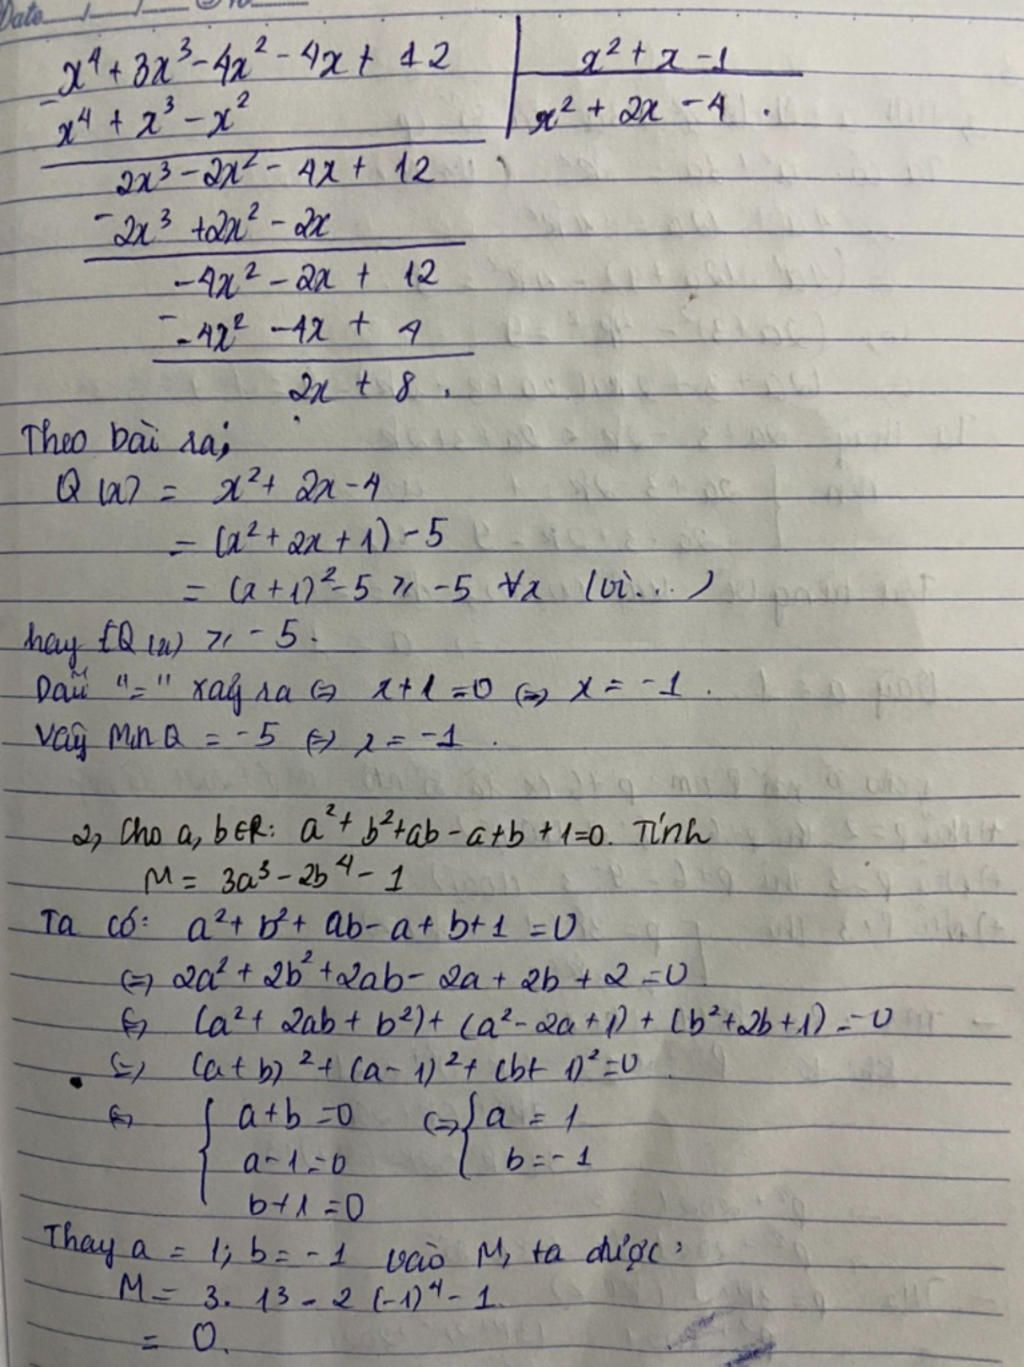 Date / /
x⁴ + 3x³ - 4x² - 4x + 12 | x² + x - 1
x⁴ + x³ - x² | x² + 2x - 4 .
2x³ - 2x² - 4x + 12
- 2x³ + 2x² - 2x
-4x² - 2x + 12
- -4x² - 4x + 4
2x + 8 .
Theo bài ra;
Q(x) = x² + 2x - 4
= (x² + 2x + 1) - 5
= (x + 1)² - 5 ≥ -5 ∀x (vì...)
hay Q(x) ≥ -5 .
Dấu "=" xảy ra ⇔ x + 1 = 0 ⇔ x = -1 .
Vậy Min Q = -5 ⇔ x = -1 .
2, Cho a, b ∈ R: a² + b² + ab - a + b + 1 = 0. Tính
M = 3a³ - 2b⁴ - 1
Ta có: a² + b² + ab - a + b + 1 = 0
⇔ 2a² + 2b² + 2ab - 2a + 2b + 2 = 0
⇔ (a² + 2ab + b²) + (a² - 2a + 1) + (b² + 2b + 1) = 0
⇔ (a + b)² + (a - 1)² + (b + 1)² = 0
⇔ { a + b = 0 ⇔ { a = 1
a - 1 = 0 b = -1
b + 1 = 0
Thay a = 1; b = -1 vào M, ta được:
M = 3. 1³ - 2 (-1)⁴ - 1
= 0.